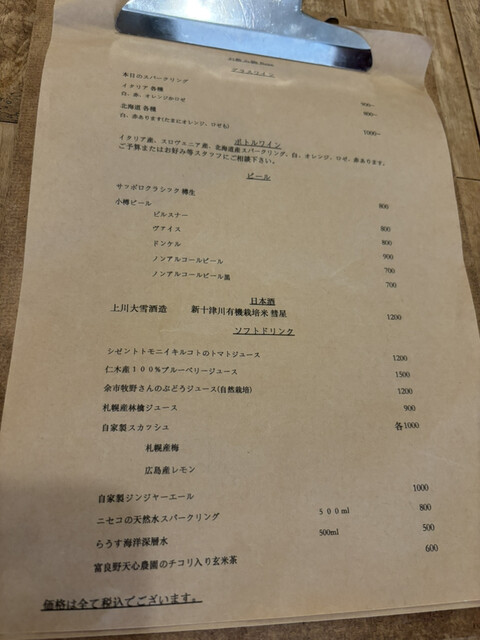 グラスワイン
本日のスパークリング 900~
イタリア各種 800~
白、赤、オレンジかロゼ
北海道各種 1000~
白、赤あります(たまにオレンジ、ロゼも)
ボトルワイン
イタリア産、スロヴェニア産、北海道産スパークリング、白、オレンジ、ロゼ、赤あります。
ご予算またはお好み等スタッフにご相談下さい。
ビール
サッポロクラシック樽生 800
小樽ビール
ピルスナー 800
ヴァイス 800
ドンケル 900
ノンアルコールビール 700
ノンアルコールビール黒 700
日本酒
上川大雪酒造 新十津川有機栽培米 彗星 1200
ソフトドリンク
シゼントトモニイキルコトのトマトジュース 1200
仁木産100%ブルーベリージュース 1500
余市牧野さんのぶどうジュース(自然栽培) 1200
札幌産林檎ジュース 900
自家製スカッシュ 各1000
札幌産梅
広島産レモン
自家製ジンジャーエール 1000
ニセコの天然水スパークリング 500ml 800
らうす海洋深層水 500ml 500
富良野天心農園のチコリ入り玄米茶 600
価格は全て税込でございます。